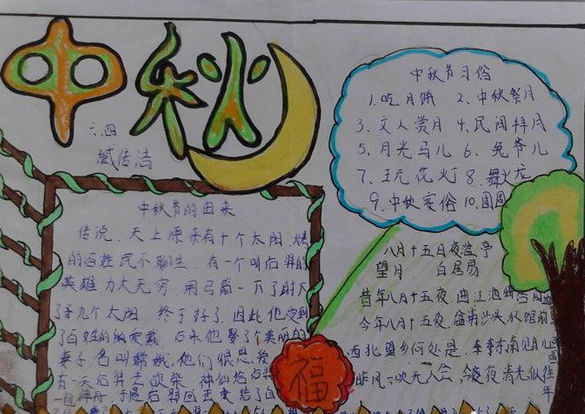 中秋
六四
臧传洁
中秋节的由来
传说,天上原来有十个太阳,烤
的百姓民不聊生,有一个叫后羿的
英雄力大无穷 用弓箭一下了射下
了九个太阳 终于好了,因此他受到
了百姓的敬爱戴 后来他娶了美丽的
妻子名叫嫦娥,他们很恩
有一天后羿去 神仙给
后羿回去
中秋节习俗
1.吃月饼 2.中秋祭月
3.文人赏月 4.民间拜月
5.月光马儿 6.兔爷儿
7.玩花灯 8.舞火龙
9.中秋宴俗 10.团圆
八月十五日夜湓亭
望月 白居易
昔年八月十五夜,曲江池畔杏园
今年八月十五夜,湓浦沙头水馆前
西北望乡何处是,东南见月几
昨风一吹无人会,今夜清光似往
年
福